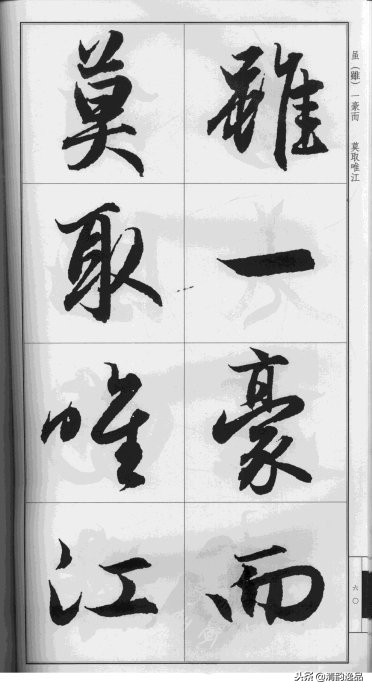 雖一豪而
莫取唯江
虽（雖）一豪而　莫取唯江
六〇
头条@清韵逸品